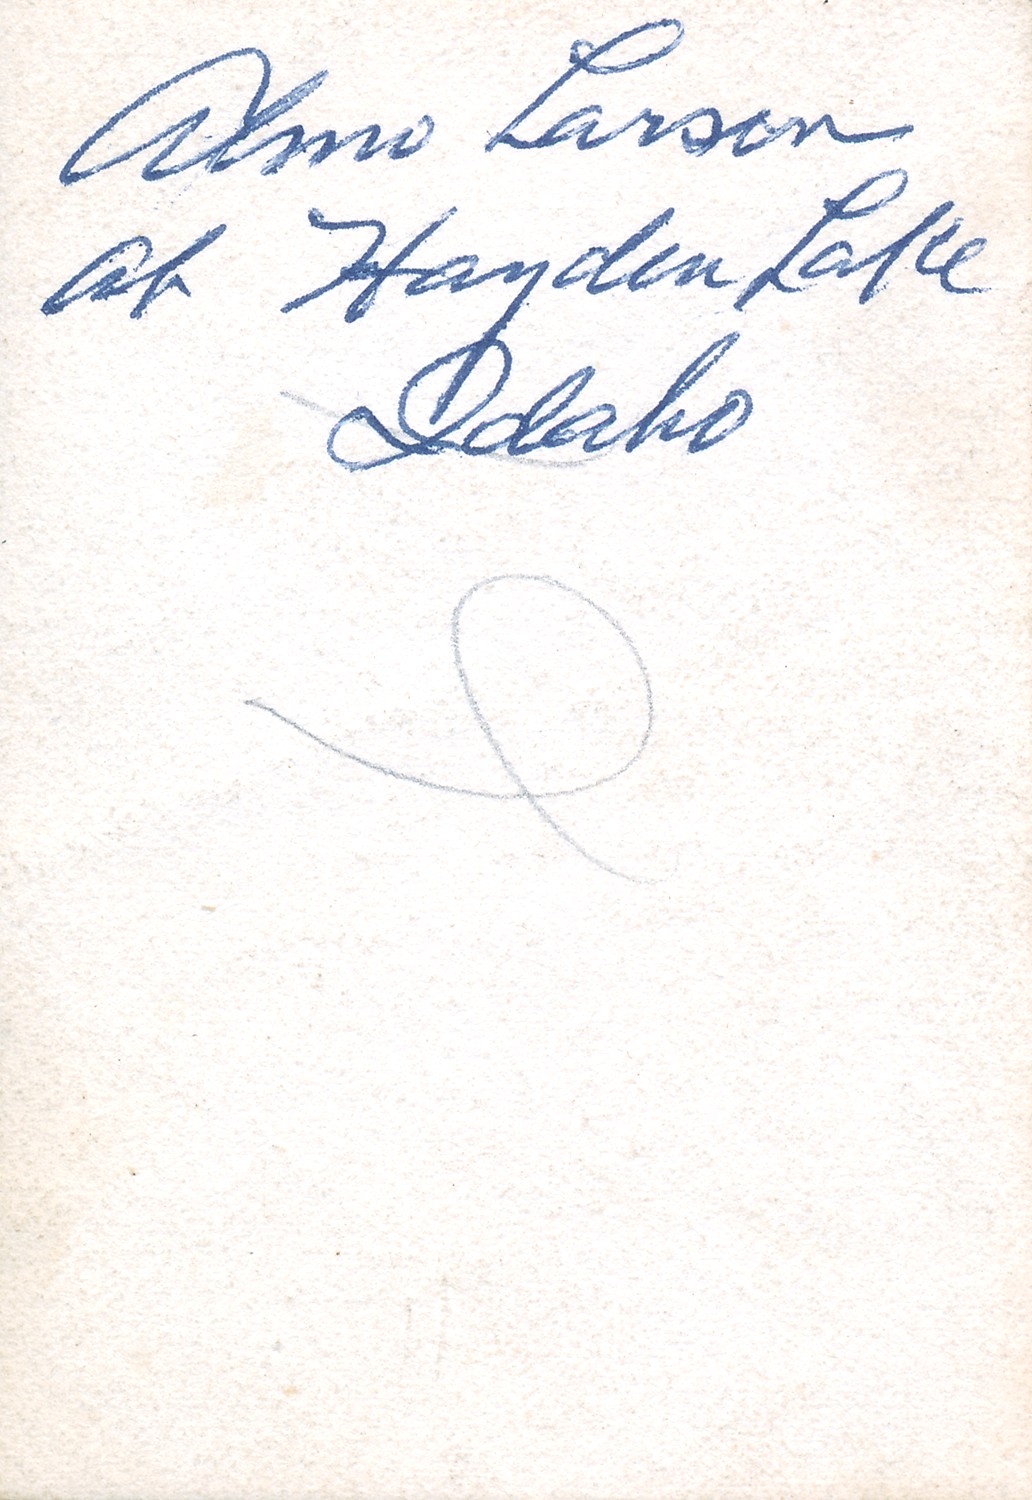 Almo Larson
at Hayden Lake
Idaho